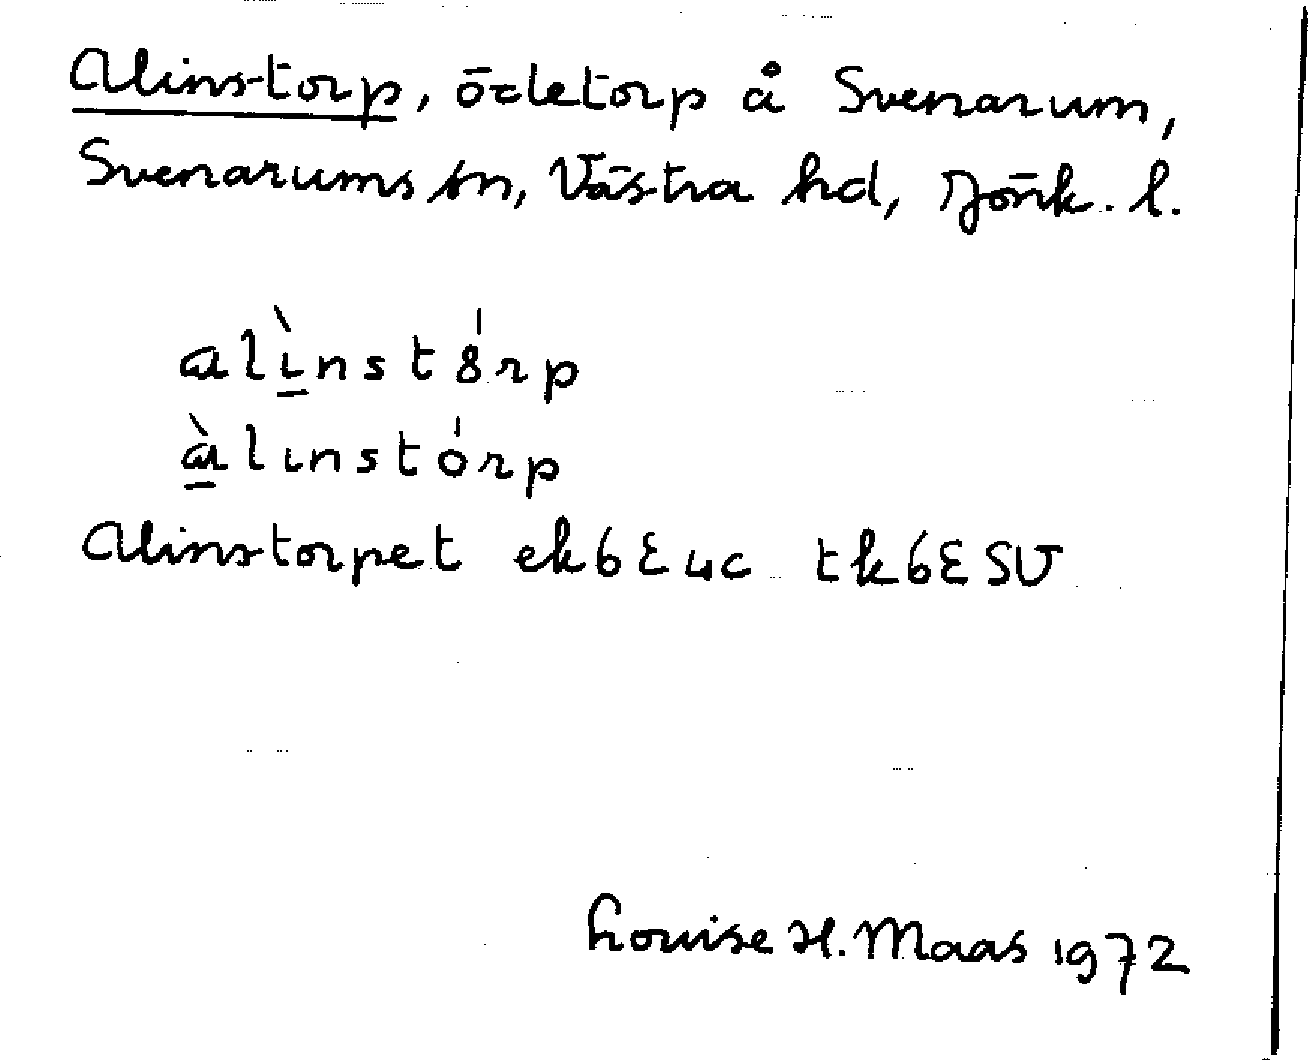 Alinstorp, ödetorp å Svenarum,
Svenarums sn, Västra hd, Jönk. l.
alìnstȣ́rp
àlınstórp
Alinstorpet ek6E4c tk6ESV
Louise H. Maas 1972